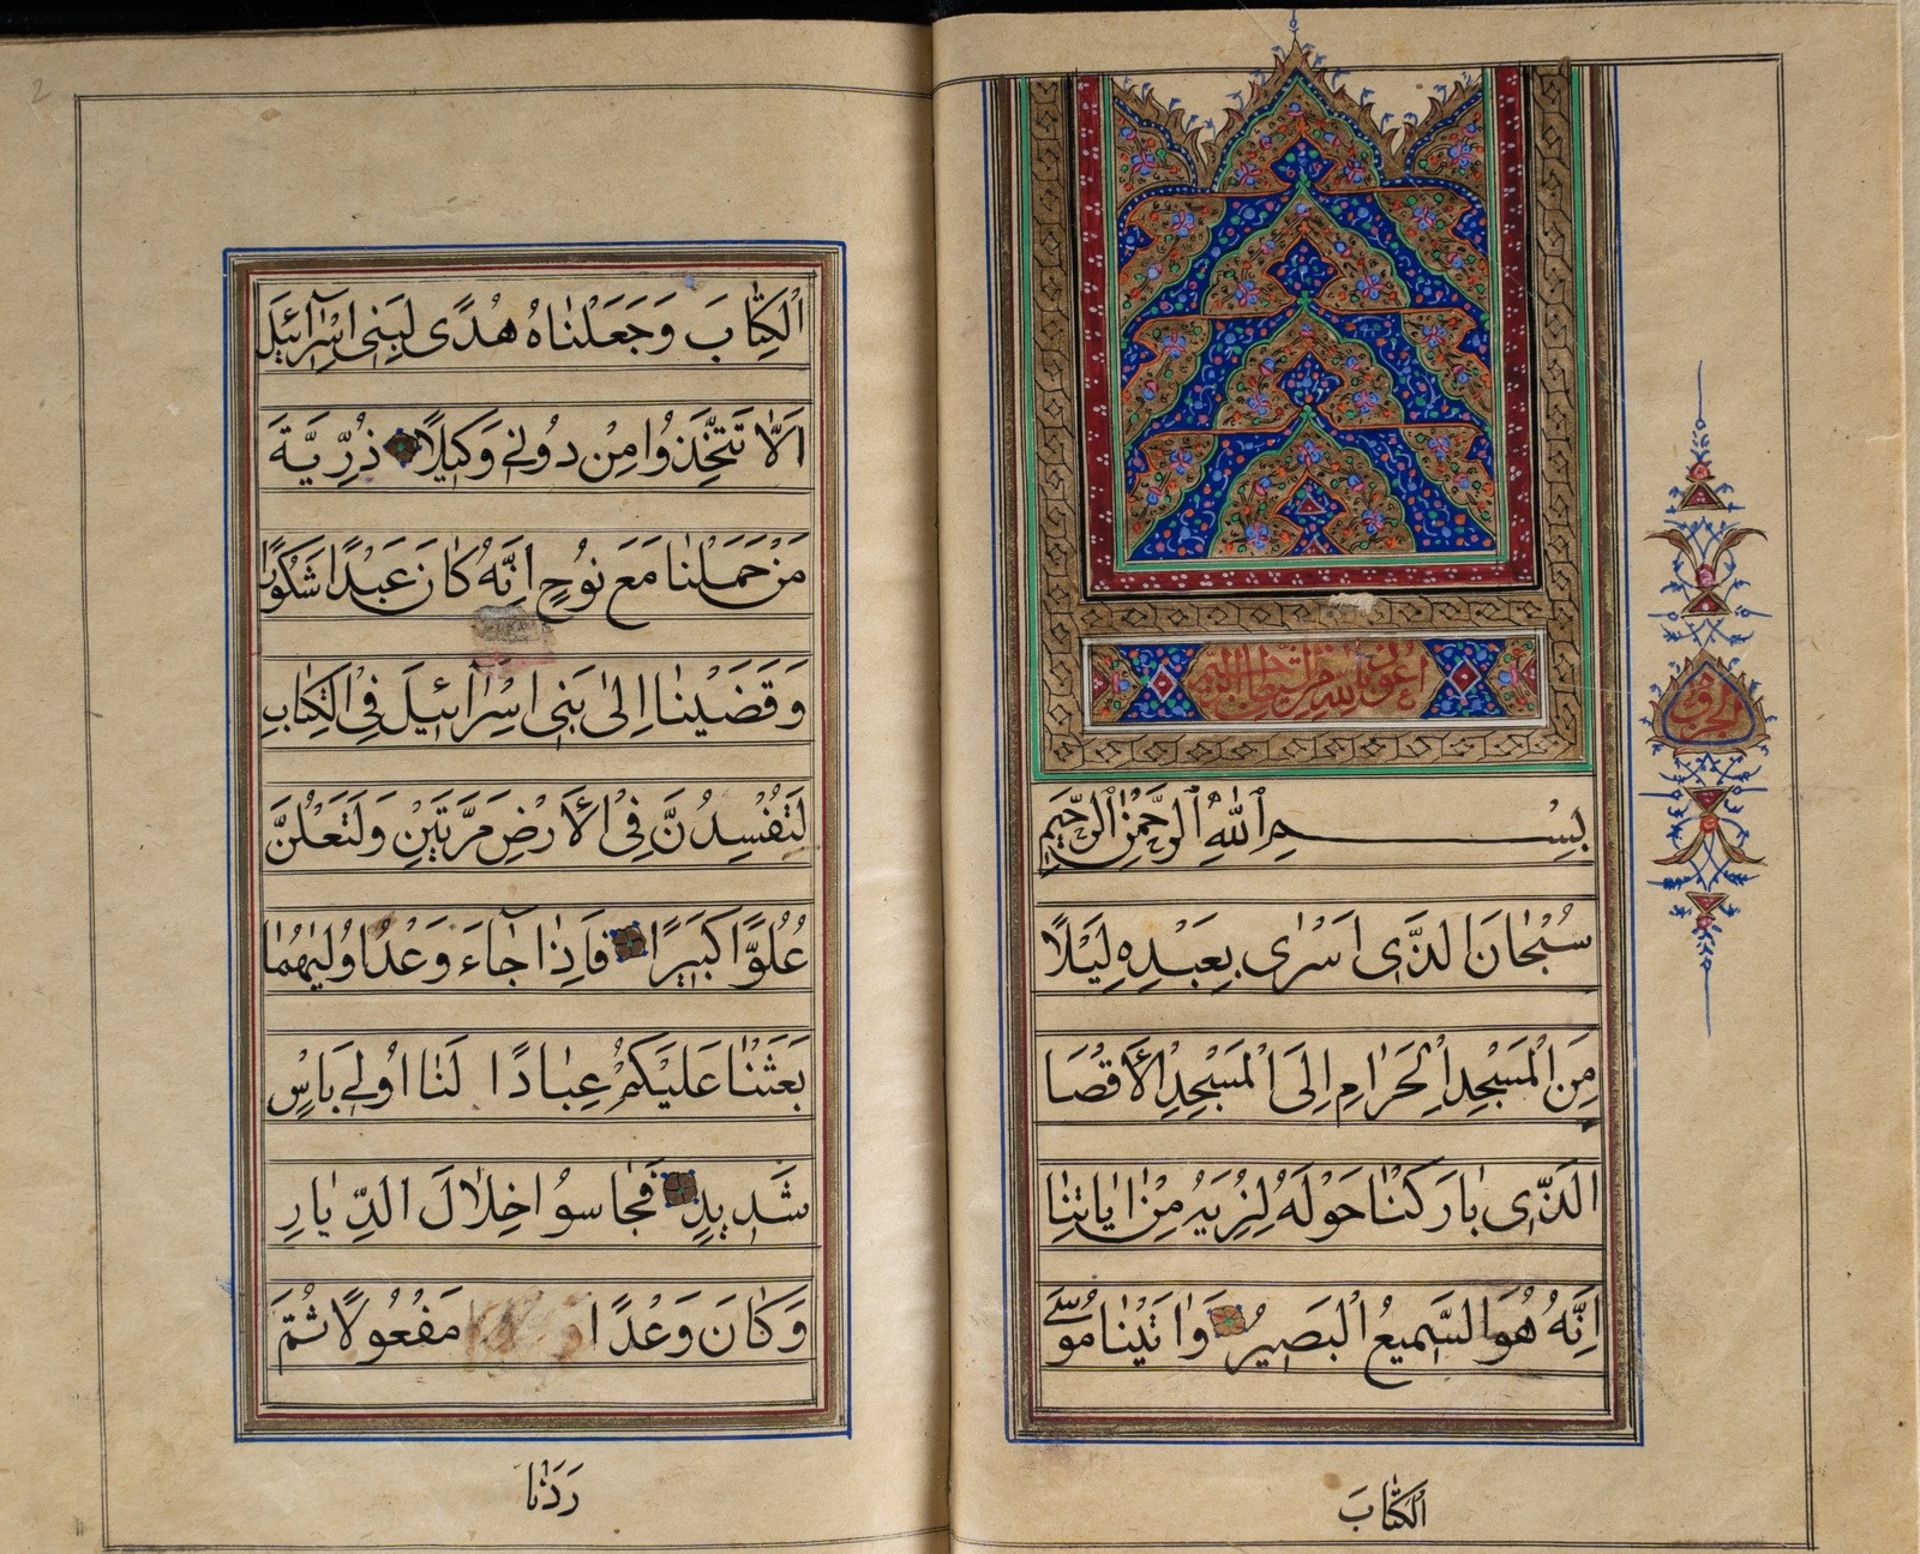 اعوذ بالله من الشيطان الرجيم
الجزؤ
بِسْمِ اللهِ الرَّحْمٰنِ الرَّحيمِ
سُبْحٰانَ الَّذَى اَسْرٰى بِعَبْدِه لَيْلًا
مِنَ الْمَسْجِدِ الْحَرٰامِ اِلَى الْمَسْجِدِ الْاَقْصَا
الَّذَى بٰارَكْنٰا حَوْلَهُ لِنُرِيَهُ مِنْ اٰيٰاتِنٰا
اِنَّهُ هُوَ السَّميعُ الْبَصيرُ وَاٰتَيْنٰا مُوسَى
الْكِتٰابَ
الْكِتٰابَ وَجَعَلْنٰاهُ هُدًى لِبَنى اِسْرٰآئيلَ
اَلّٰا تَتَّخِذُوا مِنْ دُونى وَكيلًا ذُرِّيَّةَ
مَنْ حَمَلْنٰا مَعَ نُوحٍ اِنَّهُ كٰانَ عَبْدًا شَكُورًا
وَقَضَيْنٰا اِلىٰ بَنى اِسْرٰآئيلَ فِى الْكِتٰابِ
لَتُفْسِدُنَّ فِى الْاَرْضِ مَرَّتَيْنِ وَلَتَعْلُنَّ
عُلُوًّا كَبيرًا فَاِذٰا جٰآءَ وَعْدُ اوُليٰهُمٰا
بَعَثْنٰا عَلَيْكُمْ عِبٰادًا لَنٰا اوُلى بَاْسٍ
شَديدٍ فَجٰاسوُا خِلٰالَ الدِّيٰارِ
وَكٰانَ وَعْدًا مَفْعُولًا ثُمَّ
رَدَدْنٰا